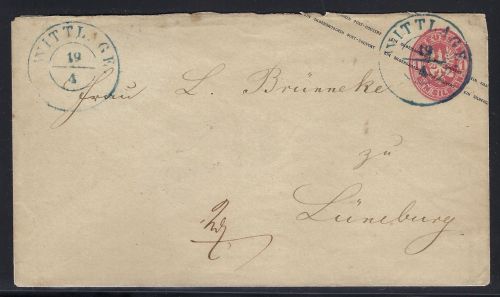 WITTLAGE
19
4
WITTLAGE
19
4
Frau L. Brünneke
zu
Lüneburg